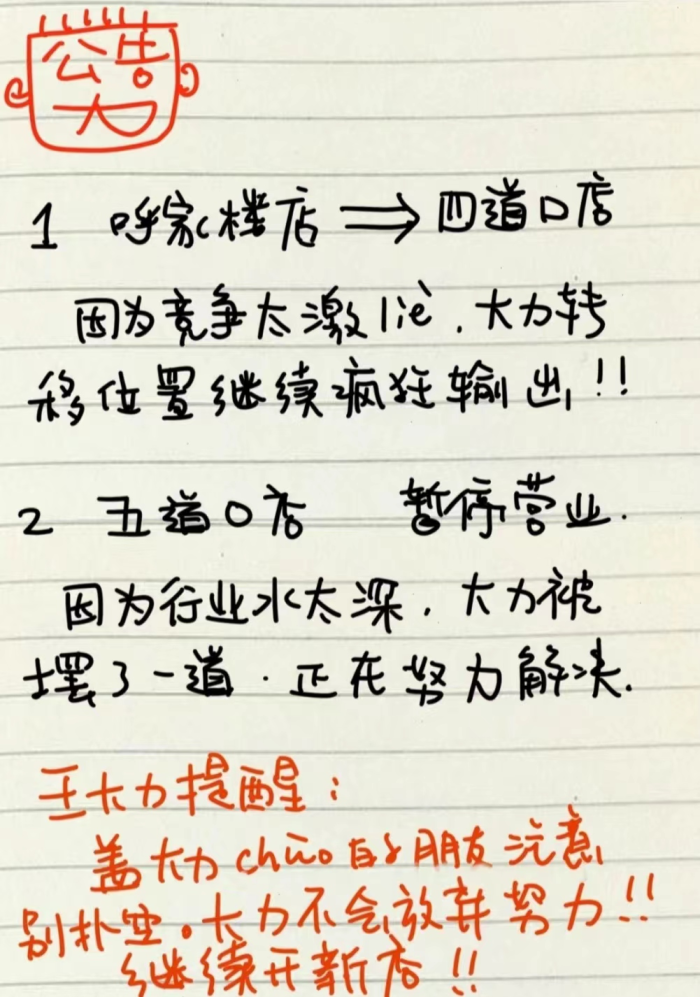 公告
1 呼家楼店 ⇒ 四道口店
因为竞争太激liè,大力转
移位置继续疯狂输出!!
2 五道口店 暂停营业.
因为行业水太深,大力被
摆了一道.正在努力解决.
王大力提醒:
盖大力chūo的朋友注意
别扑空。大力不会放弃努力!!
继续开新店!!